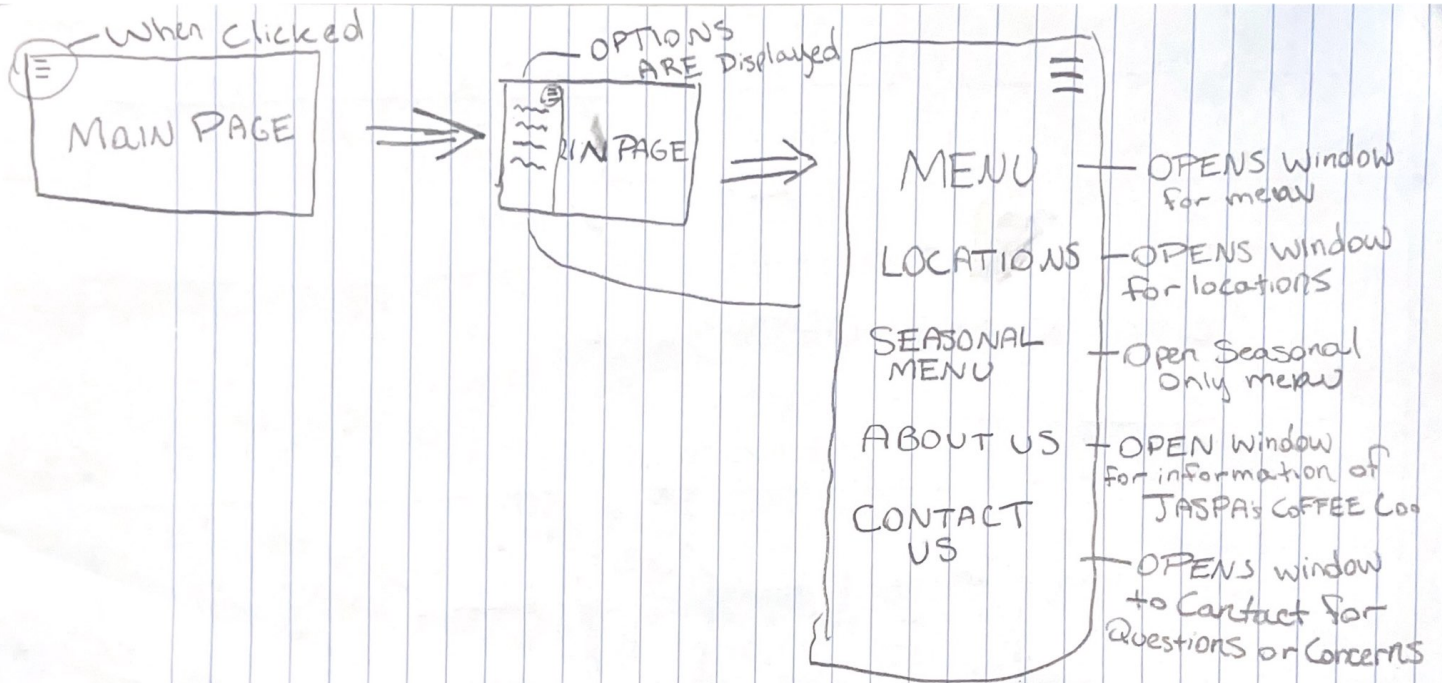 When clicked
MAIN PAGE
OPTIONS
ARE Displayed
IN PAGE
MENU
OPENS window
for menu
LOCATIONS
OPENS window
for locations
SEASONAL
MENU
Open Seasonal
Only menu
ABOUT US
OPEN window
for information of
JASPA's COFFEE Co
CONTACT
US
OPENS window
to Contact for
Questions or Concerns